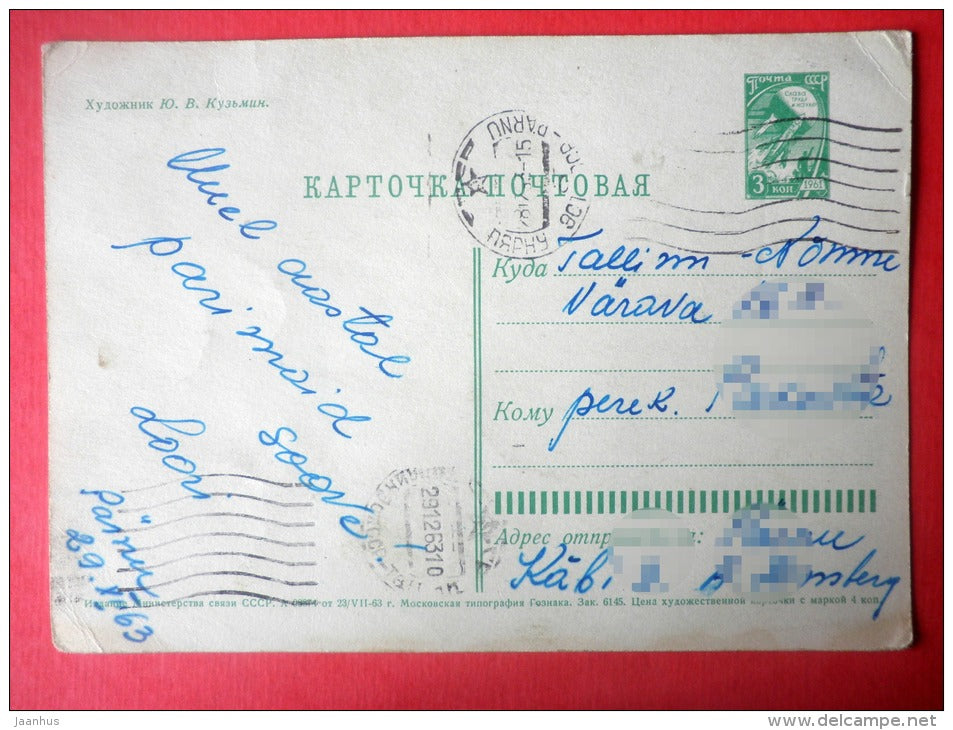 Художник Ю. В. Кузьмин.
Почта СССР
СЛАВА
ТРУДУ
И НАУКЕ
3 КОП.
1961
КАРТОЧКА ПОЧТОВАЯ
ПЯРНУ
PARNU
Uuel aastal
parimaid
soove!
Loori
Pärnus
63
Куда Tallinn-Nõmme
Värava
Кому perek.
Адрес
29126310
Министерства связи СССР. от 23/VII-63 г. Московская типография Гознака. Зак. 6145. Цена художественной карточки с маркой 4 коп.
Jaanhus
www.delcampe.net